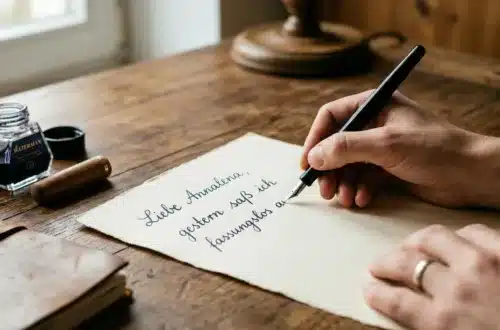 Liebe Annalena,
gestern saß ich
fassungslos au